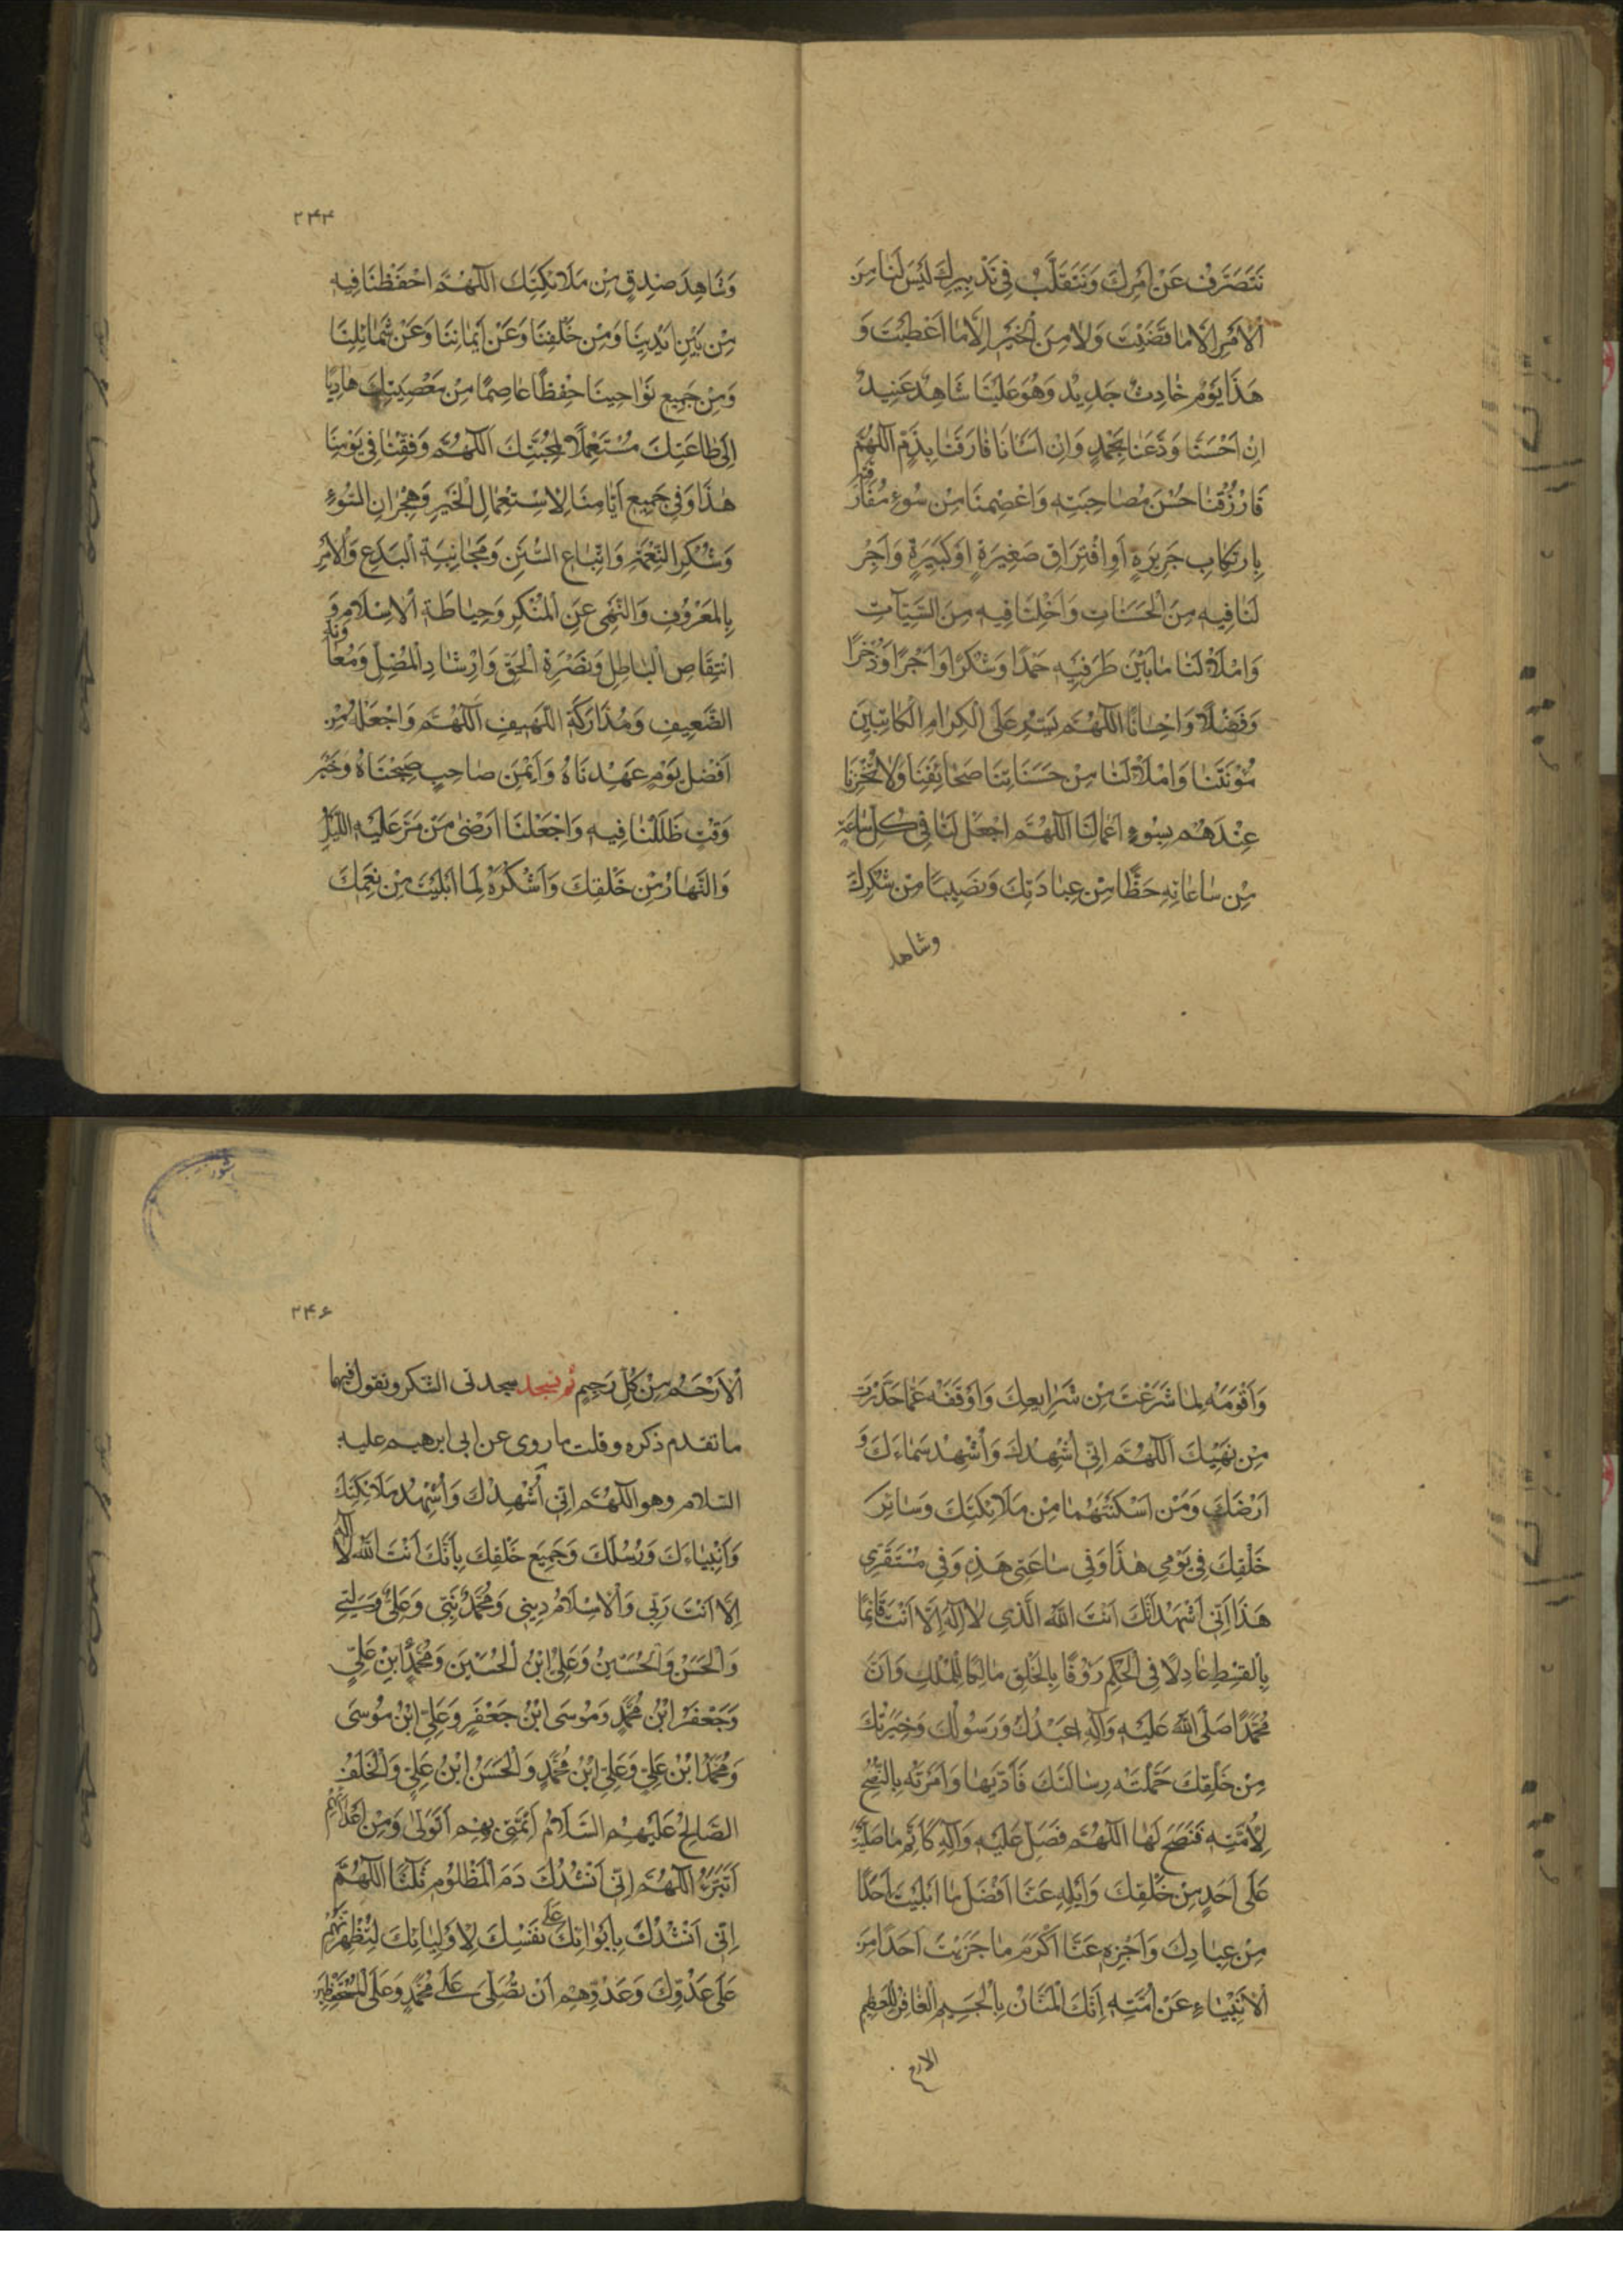 نَتَصَرَّفُ عَنْ اَمْرِكَ وَنَتَقَلَّبُ فِي تَدْبِيرِكَ لَيْسَ لَنَا مِنَ
الْاَمْرِ اِلَّا مَا قَضَيْتَ وَلَا مِنَ الْخَيْرِ اِلَّا مَا اَعْطَيْتَ وَ
هَذَا يَوْمٌ حَادِثٌ جَدِيدٌ وَهُوَ عَلَيْنَا شَاهِدٌ عَتِيدٌ
اِنْ اَحْسَنَّا وَدَّعَنَا بِحَمْدٍ وَاِنْ اَسَأْنَا فَارَقَنَا بِذَمٍّ اَللّٰهُمَّ
فَارْزُقْنَا حُسْنَ مُصَاحَبَتِهِ وَاعْصِمْنَا مِنْ سُوءِ مُفَارَقَتِهِ
بِارْتِكَابِ جَرِيرَةٍ اَوِ اقْتِرَافِ صَغِيرَةٍ اَوْ كَبِيرَةٍ وَاَجْرِ
لَنَا فِيهِ مِنَ الْحَسَنَاتِ وَاَخْلِنَا فِيهِ مِنَ السَّيِّئَاتِ
وَامْلَأْ لَنَا مَا بَيْنَ طَرَفَيْهِ حَمْدًا وَشُكْرًا وَاَجْرًا وَذُخْرًا
وَفَضْلًا وَاِحْسَانًا اَللّٰهُمَّ يَسِّرْ عَلَى الْكِرَامِ الْكَاتِبِينَ
مَؤُنَتَنَا وَامْلَأْ لَنَا مِنْ حَسَنَاتِنَا صَحَائِفَنَا وَلَا تُخْزِنَا
عِنْدَهُمْ بِسُوءِ اَعْمَالِنَا اَللّٰهُمَّ اجْعَلْ لَنَا فِي كُلِّ سَاعَةٍ
مِنْ سَاعَاتِهِ حَظًّا مِنْ عِبَادَتِكَ وَنَصِيبًا مِنْ شُكْرِكَ
وشاهد
۲۴۴
وَشَاهِدَ صِدْقٍ مِنْ مَلَائِكَتِكَ اَللّٰهُمَّ احْفَظْنَا فِيهِ
مِنْ بَيْنِ اَيْدِينَا وَمِنْ خَلْفِنَا وَعَنْ اَيْمَانِنَا وَعَنْ شَمَائِلِنَا
وَمِنْ جَمِيعِ نَوَاحِينَا حِفْظًا عَاصِمًا مِنْ مَعْصِيَتِكَ هَادِيًا
اِلَى طَاعَتِكَ مُسْتَعْمِلًا لِمَحَبَّتِكَ اَللّٰهُمَّ وَفِّقْنَا فِي يَوْمِنَا
هٰذَا وَفِي جَمِيعِ اَيَّامِنَا لِاسْتِعْمَالِ الْخَيْرِ وَهِجْرَانِ السُّوءِ
وَشُكْرِ النِّعْمَةِ وَاتِّبَاعِ السُّنَنِ وَمُجَانَبَةِ الْبِدَعِ وَالْاَمْرِ
بِالْمَعْرُوفِ وَالنَّهْيِ عَنِ الْمُنْكَرِ وَحِيَاطَةِ الْاِسْلَامِ وَ
انْتِقَاصِ الْبَاطِلِ وَنُصْرَةِ الْحَقِّ وَاِرْشَادِ الْمُضِلِّ وَمُعَاوَنَةِ
الضَّعِيفِ وَمُدَارَكَةِ اللَّهِيفِ اَللّٰهُمَّ وَاجْعَلْهُ مِنْ
اَفْضَلِ يَوْمٍ عَهِدْنَاهُ وَاَيْمَنِ صَاحِبٍ صَحِبْنَاهُ وَخَيْرِ
وَقْتٍ ظَلَلْنَا فِيهِ وَاجْعَلْنَا اَرْضَى مَنْ مَرَّ عَلَيْهِ اللَّيْلُ
وَالنَّهَارُ مِنْ خَلْقِكَ وَاَشْكَرَهُ لِمَا اَبْلَيْتَ مِنْ نِعَمِكَ
وَاَقْوَمَهُ لِمَا شَرَعْتَ مِنْ شَرَايِعِكَ وَاَوْقَفَهُ عَمَّا حَذَّرْتَ
مِنْ نَهْيِكَ اَللّٰهُمَّ اِنِّي اُشْهِدُكَ وَاُشْهِدُ سَمَاءَكَ وَ
اَرْضَكَ وَمَنْ اَسْكَنْتَهُمَا مِنْ مَلَائِكَتِكَ وَسَائِرِ
خَلْقِكَ فِي يَوْمِي هٰذَا وَفِي سَاعَتِي هَذِهِ وَفِي مُسْتَقَرِّي
هَذَا اَنِّي اَشْهَدُ اَنَّكَ اَنْتَ اللّٰهُ الَّذِي لَا اِلٰهَ اِلَّا اَنْتَ قَائِمًا
بِالْقِسْطِ عَادِلًا فِي الْحُكْمِ رَؤُفًا بِالْخَلْقِ مَالِكًا لِلْمُلْكِ وَاَنَّ
مُحَمَّدًا صَلَّى اللّٰهُ عَلَيْهِ وَآلِهِ عَبْدُكَ وَرَسُولُكَ وَخِيَرَتُكَ
مِنْ خَلْقِكَ حَمَّلْتَهُ رِسَالَتَكَ فَاَدَّيهَا وَاَمَرْتَهُ بِالنُّصْحِ
لِاُمَّتِهِ فَنَصَحَ لَهَا اَللّٰهُمَّ فَصَلِّ عَلَيْهِ وَآلِهِ كَاَتَمِّ مَا صَلَّيْتَ
عَلَى اَحَدٍ مِنْ خَلْقِكَ وَاَبْلِهِ عَنَّا اَفْضَلَ مَا اَبْلَيْتَ اَحَدًا
مِنْ عِبَادِكَ وَاَجْزِهِ عَنَّا اَكْرَمَ مَا جَزَيْتَ اَحَدًا مِنَ
الْاَنْبِيَاءِ عَنْ اُمَّتِهِ اِنَّكَ الْمَنَّانُ بِالْجَسِيمِ الْغَافِرُ لِلْعَظِيمِ
الارحم
۲۴۶
الْاَرْحَمُ مِنْ كُلِّ رَحِيمٍ ثم تسجد سجدتى الشكر وتقول فيهما
ما تقدم ذكره وقلت ما روى عن ابى ابرهيم عليه
السلام وهو اَللّٰهُمَّ اِنِّي اُشْهِدُكَ وَاُشْهِدُ مَلَائِكَتَكَ
وَاَنْبِيَاءَكَ وَرُسُلَكَ وَجَمِيعَ خَلْقِكَ بِاَنَّكَ اَنْتَ اللّٰهُ لَا اِلٰهَ
اِلَّا اَنْتَ رَبِّي وَالْاِسْلَامُ دِينِي وَمُحَمَّدٌ نَبِيِّي وَعَلِيٌّ وَلِيِّي
وَالْحَسَنُ وَالْحُسَيْنُ وَعَلِيُّ ابْنُ الْحُسَيْنِ وَمُحَمَّدُ ابْنُ عَلِيٍّ
وَجَعْفَرُ ابْنُ مُحَمَّدٍ وَمُوسَى ابْنُ جَعْفَرٍ وَعَلِيُّ ابْنُ مُوسَى
وَمُحَمَّدُ ابْنُ عَلِيٍّ وَعَلِيُّ ابْنُ مُحَمَّدٍ وَالْحَسَنُ ابْنُ عَلِيٍّ وَالْخَلَفُ
الصَّالِحُ عَلَيْهِمُ السَّلَامُ اَئِمَّتِي بِهِمْ اَتَوَلَّى وَمِنْ اَعْدَائِهِمْ
اَتَبَرَّءُ اَللّٰهُمَّ اِنِّي اَنْشُدُكَ دَمَ الْمَظْلُومِ ثَلَثًا اَللّٰهُمَّ
اِنِّي اَنْشُدُكَ بِاَيْوَائِكَ عَلَى نَفْسِكَ لِاَوْلِيَائِكَ لِتُظْهِرَنَّهُمْ
عَلَى عَدُوِّكَ وَعَدُوِّهِمْ اَنْ تُصَلِّيَ عَلَى مُحَمَّدٍ وَعَلَى الْمُسْتَحْفَظِينَ